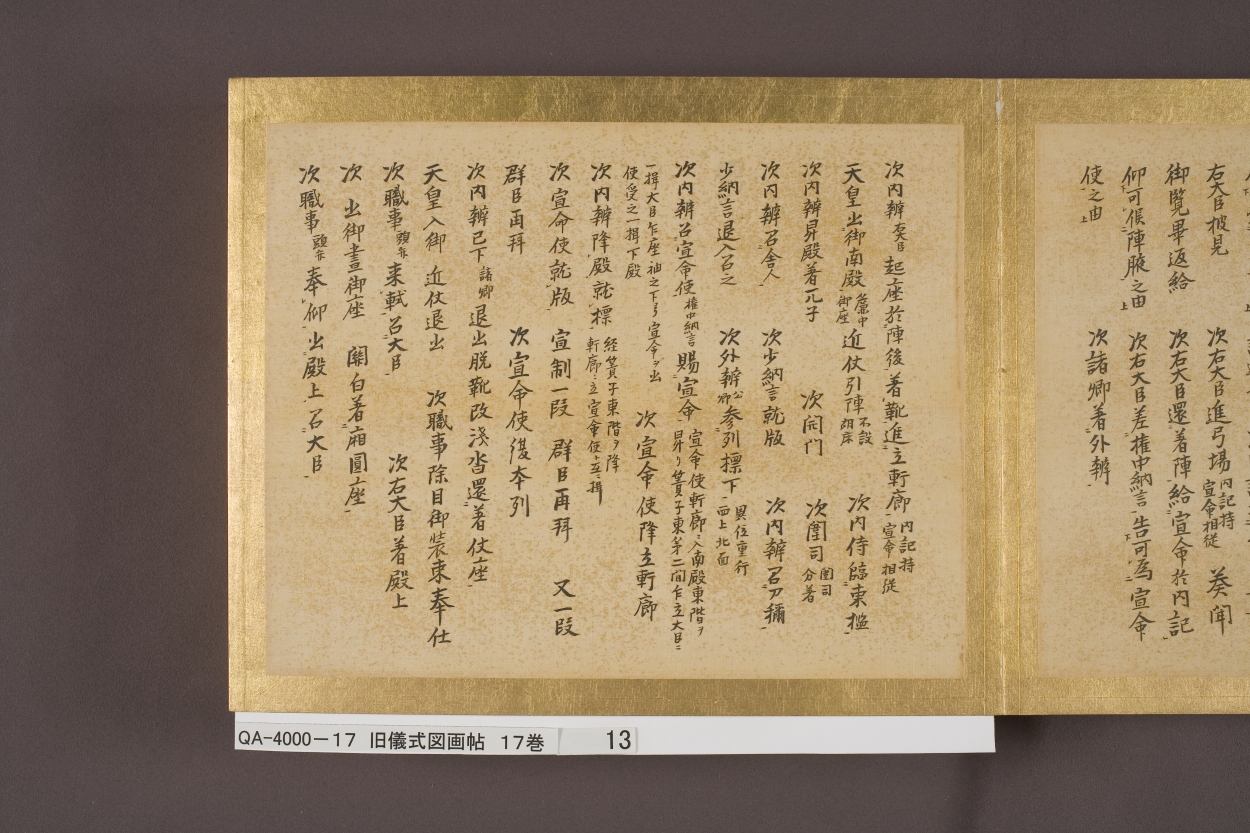 右大臣披見　次右大臣進弓場内記持宣命相従　奏聞
御覧畢返給　次右大臣還着陣給宣命於内記
仰可候陣腋之由　次右大臣差権中納言告可為宣命
使之由　次諸卿着外辨
次内辨右大臣起座於陣後着靴進立軒廊内記持宣命相従
天皇出御南殿簾中御座近仗引陣不設胡床　次内侍臨東檻
次内辨昇殿着兀子　次開門　次闈司闈司分着
次内辨召舎人　次少納言就版　次内辨召刀禰
少納言退入召之　次外辨公卿参列標下異位重行西上北面
次内辨召宣命使権中納言賜宣命宣命使軒廊ニ入南殿東階ヲ昇リ簀子東第二間乍立大臣ニ
一揖大臣乍座袖之下ヨリ宣命ヲ出使受之一揖下殿　次宣命使降立軒廊
次内辨降殿就標経簀子東階ヲ降軒廊ニ立宣命使ト互ニ揖
次宣命使就版　宣制一段　群臣再拜　又一段
群臣再拜　次宣命使復本列
次内辨已下諸卿退出脱靴改浅沓還着仗座
天皇入御　近仗退出　次職事除目御装束奉仕
次職事頭弁来軾召大臣　次右大臣着殿上
次出御晝御座　関白着廂圓座
次職事頭弁奉仰出殿上召大臣
QA-4000-17　旧儀式図画帖　17巻　13